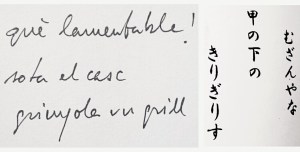 què lamentable!
sota el casc
grinyola un grill
むざんやな
甲の下の
きりぎりす